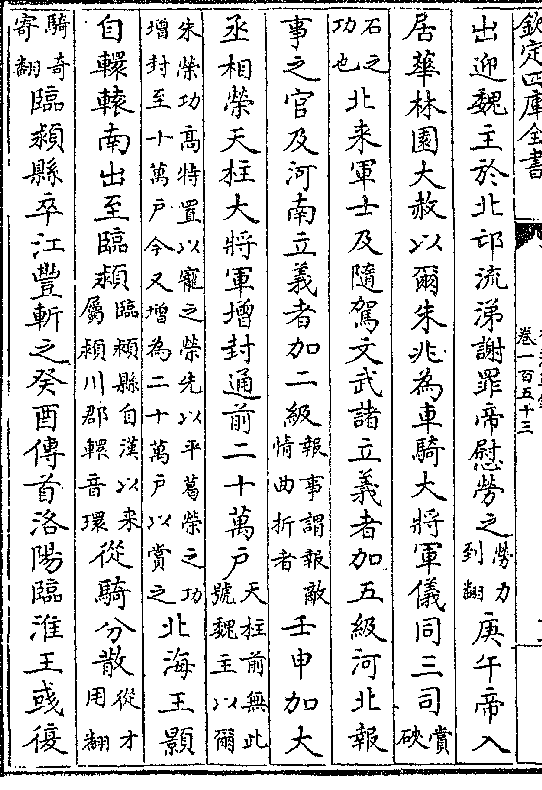 欽定四庫全書
卷一百五十三
出迎魏主於北邙流涕謝罪帝慰勞之勞力到翻庚午帝入
居華林園大赦以爾朱兆為車騎大將軍儀同三司賞硤
石之功也北来軍士及隨駕文武諸立義者加五級河北報
事之官及河南立義者加二級報事謂報敵情曲折者壬申加大
丞相榮天柱大將軍增封通前二十萬户天柱前無此號魏主以爾
朱榮功高特置以寵之榮先以平葛榮之功增封至十萬户今又增為二十萬户以賞之北海王顥
自轘轅南出至臨潁臨潁縣自漢以来屬潁川郡轘音環從騎分散從才用翻
騎奇寄翻臨潁縣卒江豐斬之癸酉傳首洛陽臨淮王彧復